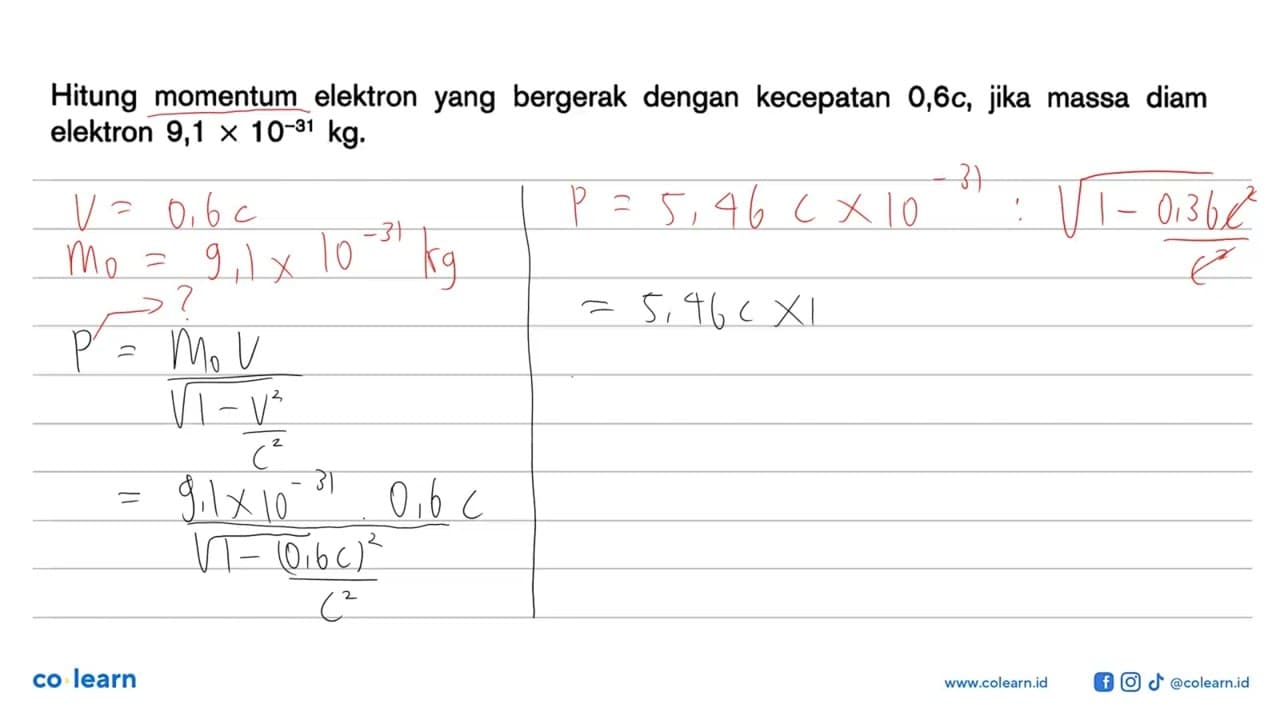 Hitung momentum elektron yang bergerak dengan kecepatan 0,6c, jika massa diam
elektron 9,1 × 10⁻³¹ kg.
V = 0,6c
m₀ = 9,1 × 10⁻³¹ kg
?
P = m₀ V
√1 - V²
c²
= 9,1 × 10⁻³¹ . 0,6 c
√1 - (0,6c)²
c²
P = 5,46 c × 10⁻³¹ : √1 - 0,36c²
c²
= 5,46 c × 1
co learn
www.colearn.id
@colearn.id